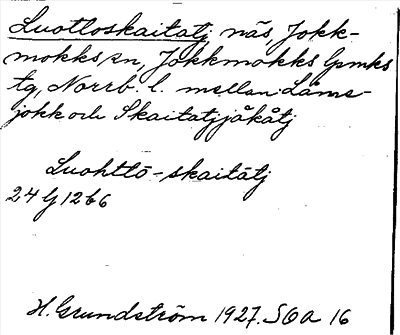 Luottoskaitatj, näs, Jokk-
mokks sn, Jokkmokks lpmks
tg, Norrb. l. mellan Låms-
jokk och Skaitatjjåkåtj
Luohttō-skaitātj
24 G 12 b 6
H. Grundström 1927. SOA 16